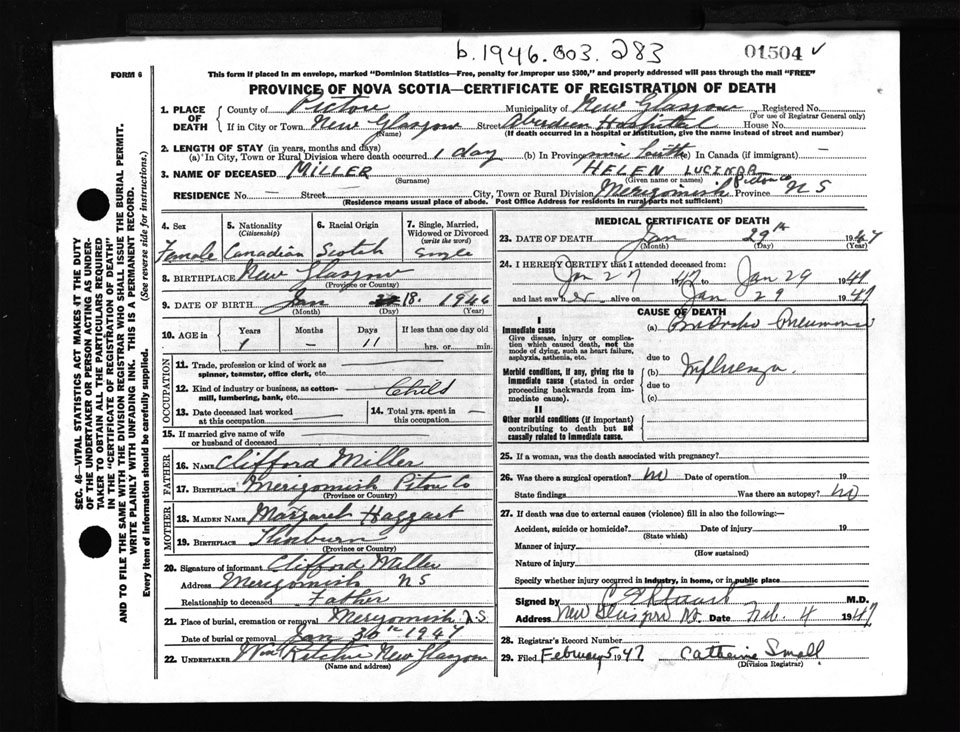 b.1946.003.283
01504 ✓
FORM 6
This form if placed in an envelope, marked "Dominion Statistics—Free, penalty for improper use $300," and properly addressed will pass through the mail "FREE"
PROVINCE OF NOVA SCOTIA—CERTIFICATE OF REGISTRATION OF DEATH
1. PLACE OF DEATH
County of Pictou Municipality of New Glasgow Registered No.
(For use of Registrar General only)
If in City or Town New Glasgow Street Aberdeen Hospital House No.
(Name) (If death occurred in a hospital or institution, give the name instead of street and number)
2. LENGTH OF STAY (in years, months and days)
(a) In City, Town or Rural Division where death occurred 1 day (b) In Province since birth In Canada (if immigrant) —
3. NAME OF DECEASED MILLER HELEN LUCINDA
(Surname) (Given name or names) Pictou Co
RESIDENCE No. — Street — City, Town or Rural Division Merigomish Province NS
(Residence means usual place of abode. Post Office Address for residents in rural parts not sufficient)
SEC. 46—VITAL STATISTICS ACT MAKES IT THE DUTY
OF THE UNDERTAKER OR PERSON ACTING AS UNDER-
TAKER TO OBTAIN ALL THE PARTICULARS REQUIRED
IN THE "CERTIFICATE OF REGISTRATION OF DEATH"
AND TO FILE THE SAME WITH THE DIVISION REGISTRAR WHO SHALL ISSUE THE BURIAL PERMIT.
WRITE PLAINLY WITH UNFADING INK. THIS IS A PERMANENT RECORD.
Every item of information should be carefully supplied. (See reverse side for instructions.)
4. Sex
Female
5. Nationality
(Citizenship)
Canadian
6. Racial Origin
Scotch
7. Single, Married,
Widowed or Divorced
(write the word)
Single
8. BIRTHPLACE New Glasgow
(Province or County)
9. DATE OF BIRTH Jan 18. 1946
(Month) (Day) (Year)
10. AGE in
Years Months Days If less than one day old
1 - 11 hrs. or min.
OCCUPATION
11. Trade, profession or kind of work as
spinner, teamster, office clerk, etc.
12. Kind of industry or business, as cotton-
mill, lumbering, bank, etc. Child
13. Date deceased last worked
at this occupation
14. Total yrs. spent in
this occupation —
15. If married give name of wife
or husband of deceased
FATHER
16. NAME Clifford Miller
17. BIRTHPLACE Merigomish Pitou Co
(Province or County)
MOTHER
18. MAIDEN NAME Margaret Haggart
19. BIRTHPLACE Thorburn
(Province or County)
20. Signature of informant Clifford Miller
Address Merigomish NS
Relationship to deceased Father
21. Place of burial, cremation or removal Merigomish N.S.
Date of burial or removal Jan 30th 1947
22. UNDERTAKER Wm Ritchie New Glasgow
(Name and address)
MEDICAL CERTIFICATE OF DEATH
23. DATE OF DEATH Jan 29th 1947
(Month) (Day) (Year)
24. I HEREBY CERTIFY that I attended deceased from:
Jan 27 1947 to Jan 29 1947
and last saw her alive on Jan 29 1947
CAUSE OF DEATH
I
Immediate cause
Give disease, injury or complica-
tion which caused death, not the
mode of dying, such as heart failure,
asphyxia, asthenia, etc.
(a) Broncho Pneumonia
due to
Morbid conditions, if any, giving rise to
immediate cause (stated in order
proceeding backwards from im-
mediate cause).
(b) Influenza.
due to
(c)
II
Other morbid conditions (if important)
contributing to death but not
causally related to immediate cause.
25. If a woman, was the death associated with pregnancy?
26. Was there a surgical operation? No Date of operation 19
State findings Was there an autopsy? No
27. If death was due to external causes (violence) fill in also the following:—
Accident, suicide or homicide? Date of injury 19
(State which)
Manner of injury
(How sustained)
Nature of injury
Specify whether injury occurred in industry, in home, or in public place
Signed by M.D.
Address New Glasgow Date Feb. 4 1947
28. Registrar's Record Number
29. Filed February 5 1947 Catherine Small
(Division Registrar)